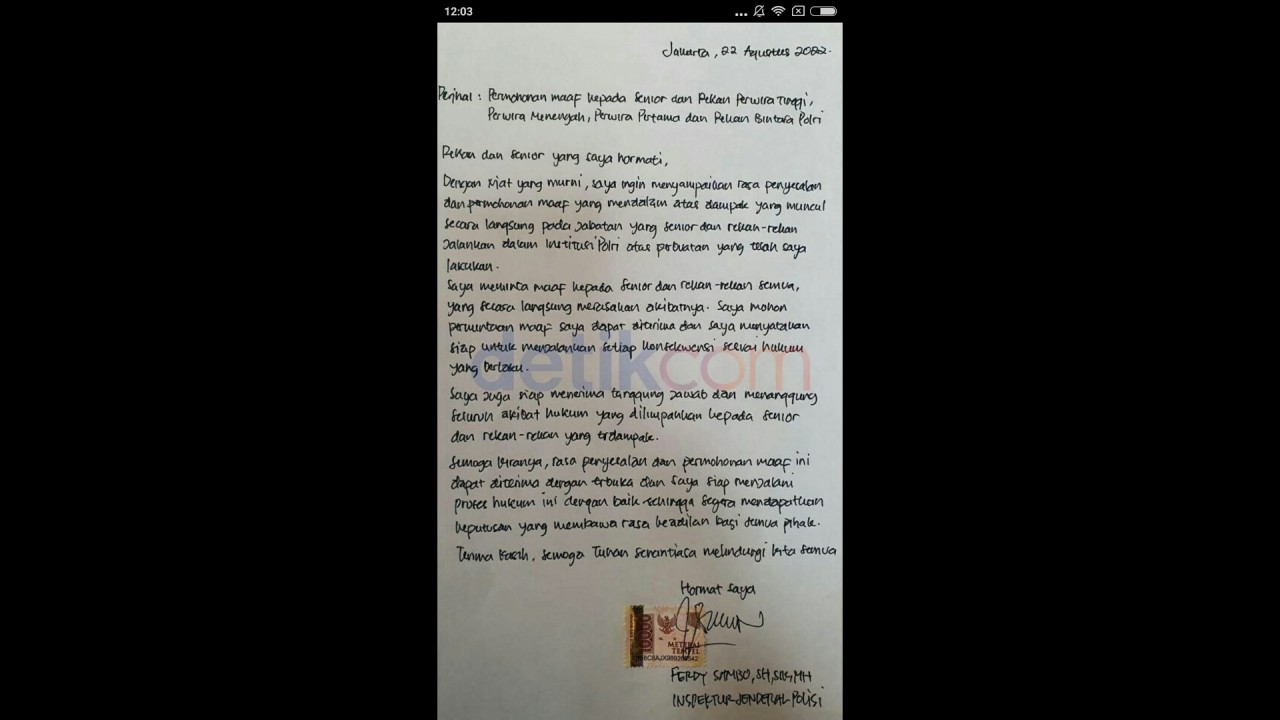 12:03
Jakarta, 22 Agustus 2022.
Perihal : Permohonan maaf kepada Senior dan Rekan Perwira Tinggi,
Perwira Menengah, Perwira Pertama dan Rekan Bintara Polri
Rekan dan Senior yang saya hormati,
Dengan niat yang murni, saya ingin menyampaikan rasa penyesalan
dan permohonan maaf yang mendalam atas dampak yang muncul
secara langsung pada jabatan yang senior dan rekan-rekan
jalankan dalam institusi Polri atas perbuatan yang telah saya
lakukan.
Saya meminta maaf kepada Senior dan rekan-rekan semua,
yang secara langsung merasakan akibatnya. Saya mohon
permintaan maaf saya dapat diterima dan saya menyatakan
siap untuk menjalankan setiap konsekwensi sesuai hukum
yang berlaku.
detikcom
Saya juga siap menerima tanggung jawab dan menanggung
seluruh akibat hukum yang dilimpahkan kepada senior
dan rekan-rekan yang terdampak.
Semoga kiranya, rasa penyesalan dan permohonan maaf ini
dapat diterima dengan terbuka dan saya siap menjalani
proses hukum ini dengan baik sehingga segera mendapatkan
keputusan yang membawa rasa keadilan bagi semua pihak.
Terima kasih, semoga Tuhan senantiasa melindungi kita semua
Hormat saya
10000
METERAI
TEMPEL
FERDY SAMBO, SH, SIK, MH
INSPEKTUR JENDERAL POLISI